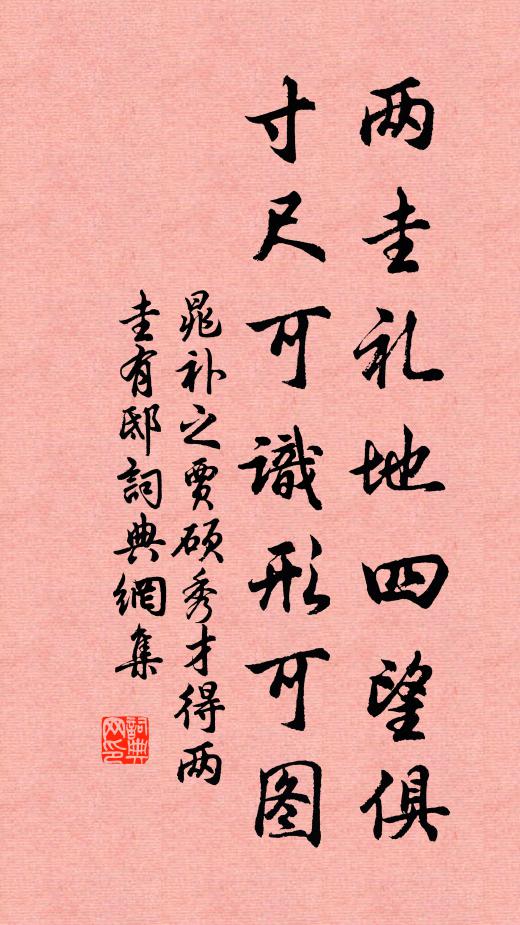 两圭礼地四望俱
寸尺可識形可图
晁补之贾硕秀才得两
圭有邸詞典網集
詞典网印